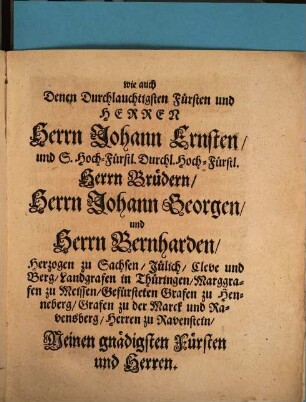 wie auch
Denen Durchlauchtigsten Fürsten und
HERREN
Herrn Johann Ernsten/
und S. Hoch-Fürstl. Durchl. Hoch-Fürstl.
Herrn Brüdern/
Herrn Johann Georgen/
und
Herrn Bernharden/
Herzogen zu Sachsen/ Jülich/ Cleve und
Berg/ Landgrafen in Thüringen/ Marggra-
fen zu Meissen/ Gefürsteten Grafen zu Hen-
neberg/ Grafen zu der Marck und Ra-
vensberg/ Herren zu Ravenstein/
Meinen gnädigsten Fürsten
und Herren.